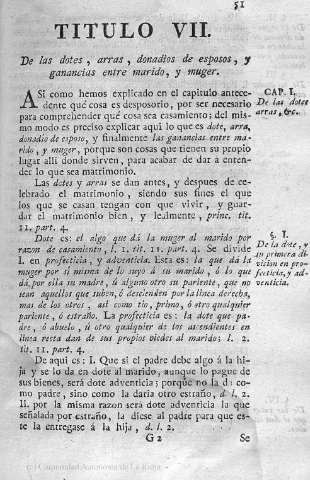 51
TITULO VII.
De las dotes, arras, donadios de esposos, y
ganancias entre marido, y muger.
ASi como hemos explicado en el capitulo antece-
dente què cosa es desposorio, por ser necesario
para comprehender què cosa sea casamiento; del mis-
mo modo es preciso explicar aqui lo que es dote, arra,
donadio de esposo, y finalmente las ganancias entre ma-
rido, y muger, porque son cosas que tienen su propio
lugar alli donde sirven, para acabar de dar a enten-
der lo que sea matrimonio.
CAP. I.
De las dotes
arras, &c.
Las dotes y arras se dan antes, y despues de ce-
lebrado el matrimonio, siendo sus fines el que
los que se casan tengan con que vivir, y guar-
dar el matrimonio bien, y lealmente, princ. tit.
11. part. 4.
Dote es: el algo que dá la muger al marido por
razon de casamiento, l. 1. tit. 11. part. 4. Se divide
I. en profecticia, y adventicia. Esta es: la que dá la
muger por sì misma de lo suyo á su marido, ó lo que
dá, por ella su madre, ú alguno otro su pariente, que no
sean aquellos que suben, ó descienden por la linea derecha,
mas de los otros, asi como tio, primo, ó otro qualquier
pariente, ó estraño. La profecticia es: la dote que pa-
dre, ó abuelo, ú otro qualquier de los ascendientes en
linea resta dan de sus propios viedes al marido; l. 2.
tit. 11. part. 4.
§. I.
De la dote, y
su primera di-
vision en pro-
fecticia, y ad-
venticia.
De aqui es: I. Que si el padre debe algo á la hi-
ja y se lo da en dote al marido, aunque lo pague de
sus bienes, será dote adventicia; porque no la dá co-
mo padre, sino como la daria otro estraño, d. l. 2.
II. por la misma razon será dote adventicia la que
señalada por estraño, la diese al padre para que es-
te la entregase á la hija, d. l. 2.
G 2
Se
(c) Comunidad Autónoma de La Rioja